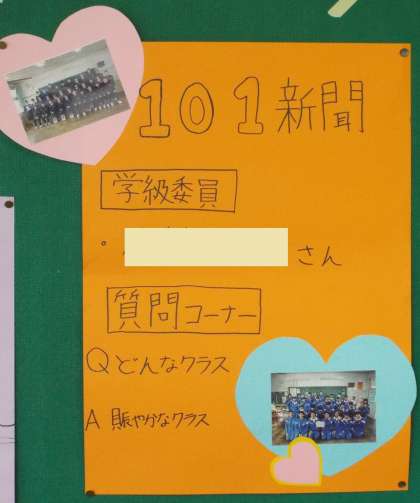 101新聞
学級委員
さん
質問コーナー
Qどんなクラス
A 賑やかなクラス